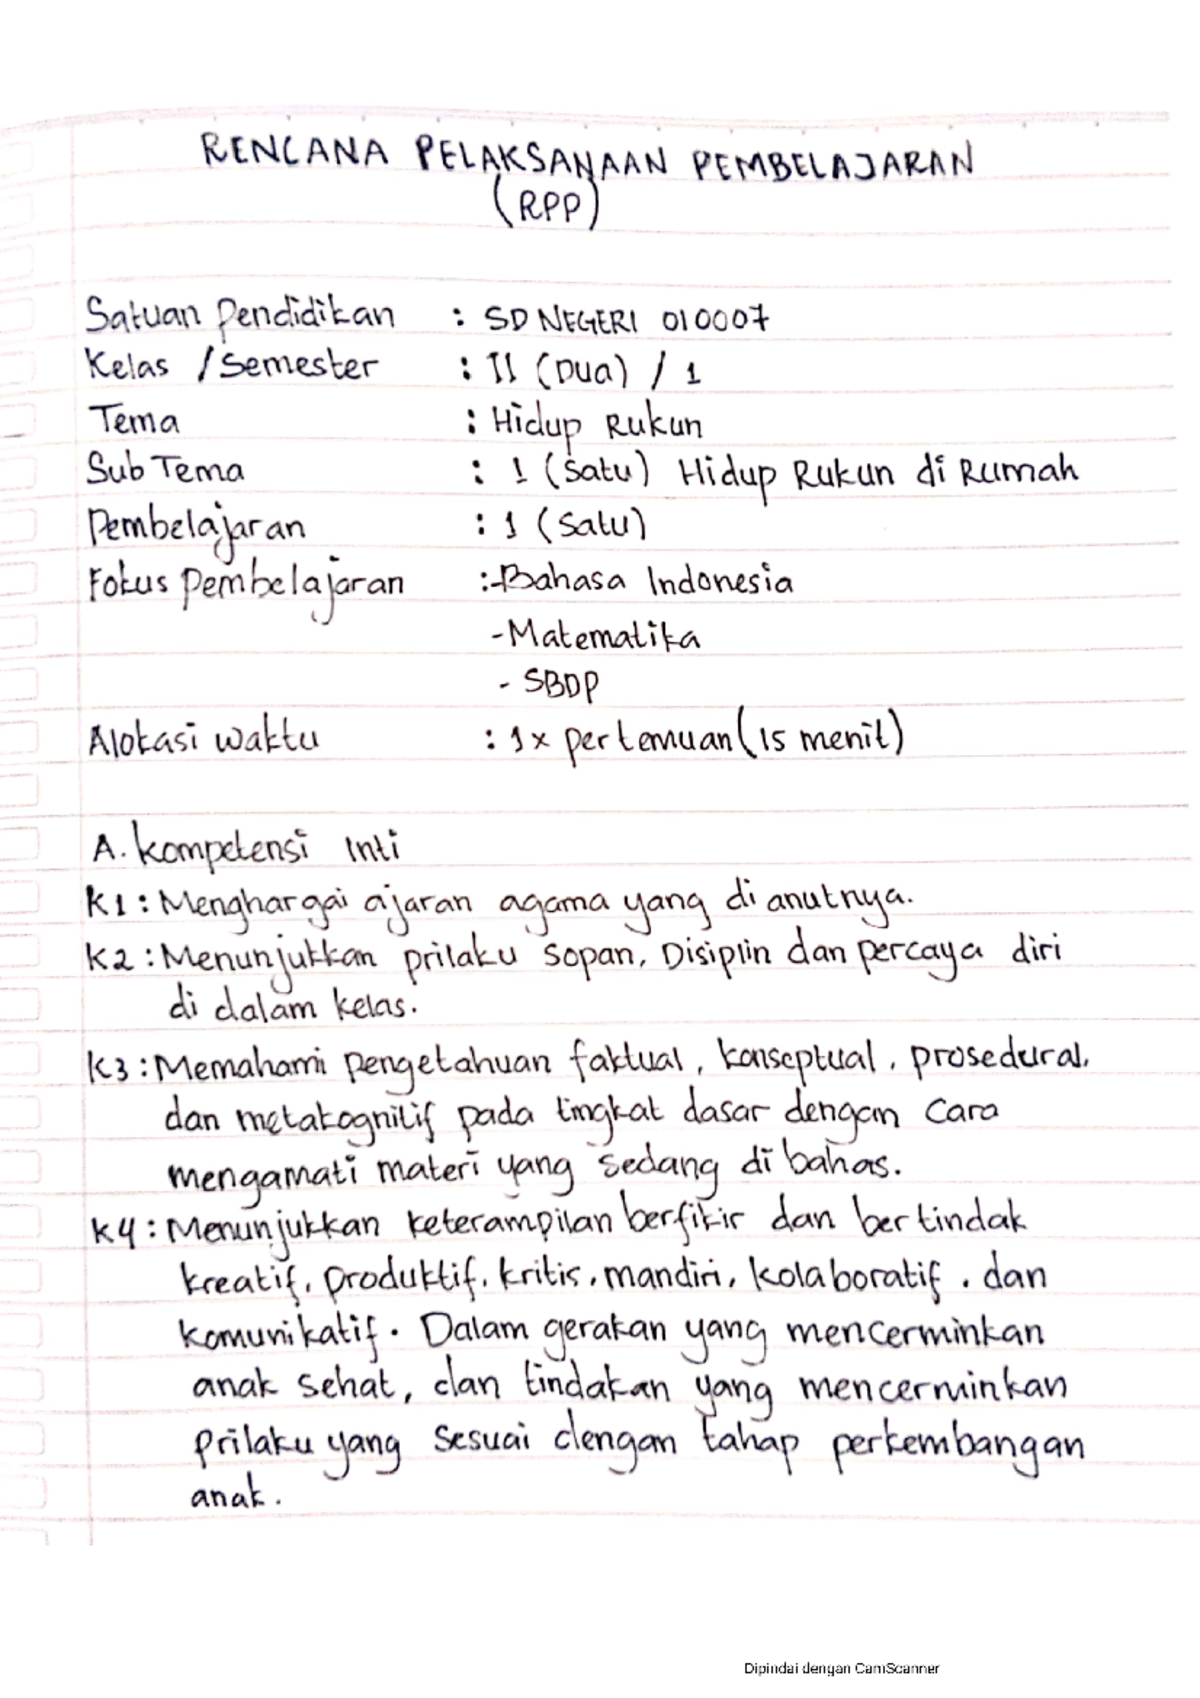 RENCANA PELAKSANAAN PEMBELAJARAN
(RPP)
Satuan Pendidikan : SD NEGERI 010007
Kelas / Semester : II (Dua) / 1
Tema : Hidup Rukun
Sub Tema : 1 (Satu) Hidup Rukun di Rumah
Pembelajaran : 1 (Satu)
Fokus Pembelajaran :-Bahasa Indonesia
-Matematika
- SBDP
Alokasi waktu : 1x pertemuan (15 menit)
A. Kompetensi Inti
K1 : Menghargai ajaran agama yang di anutnya.
K2 : Menunjukkan prilaku sopan, Disiplin dan percaya diri
di dalam kelas.
K3 : Memahami pengetahuan faktual, konseptual, prosedural,
dan metakognitif pada tingkat dasar dengan cara
mengamati materi yang sedang di bahas.
K4 : Menunjukkan keterampilan berfikir dan bertindak
kreatif, produktif, kritis, mandiri, kolaboratif, dan
komunikatif. Dalam gerakan yang mencerminkan
anak sehat, dan tindakan yang mencerminkan
prilaku yang sesuai dengan tahap perkembangan
anak.
Dipindai dengan CamScanner